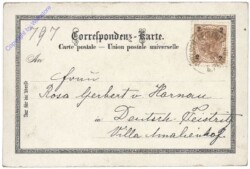 797
Correspondenz-Karte.
Carte postale — Union postale universelle
An
Frau
Rosa Gerbert v. Hornau
à Deutsch-Feistritz
Villa Amalienhof
Nur für die Adresse